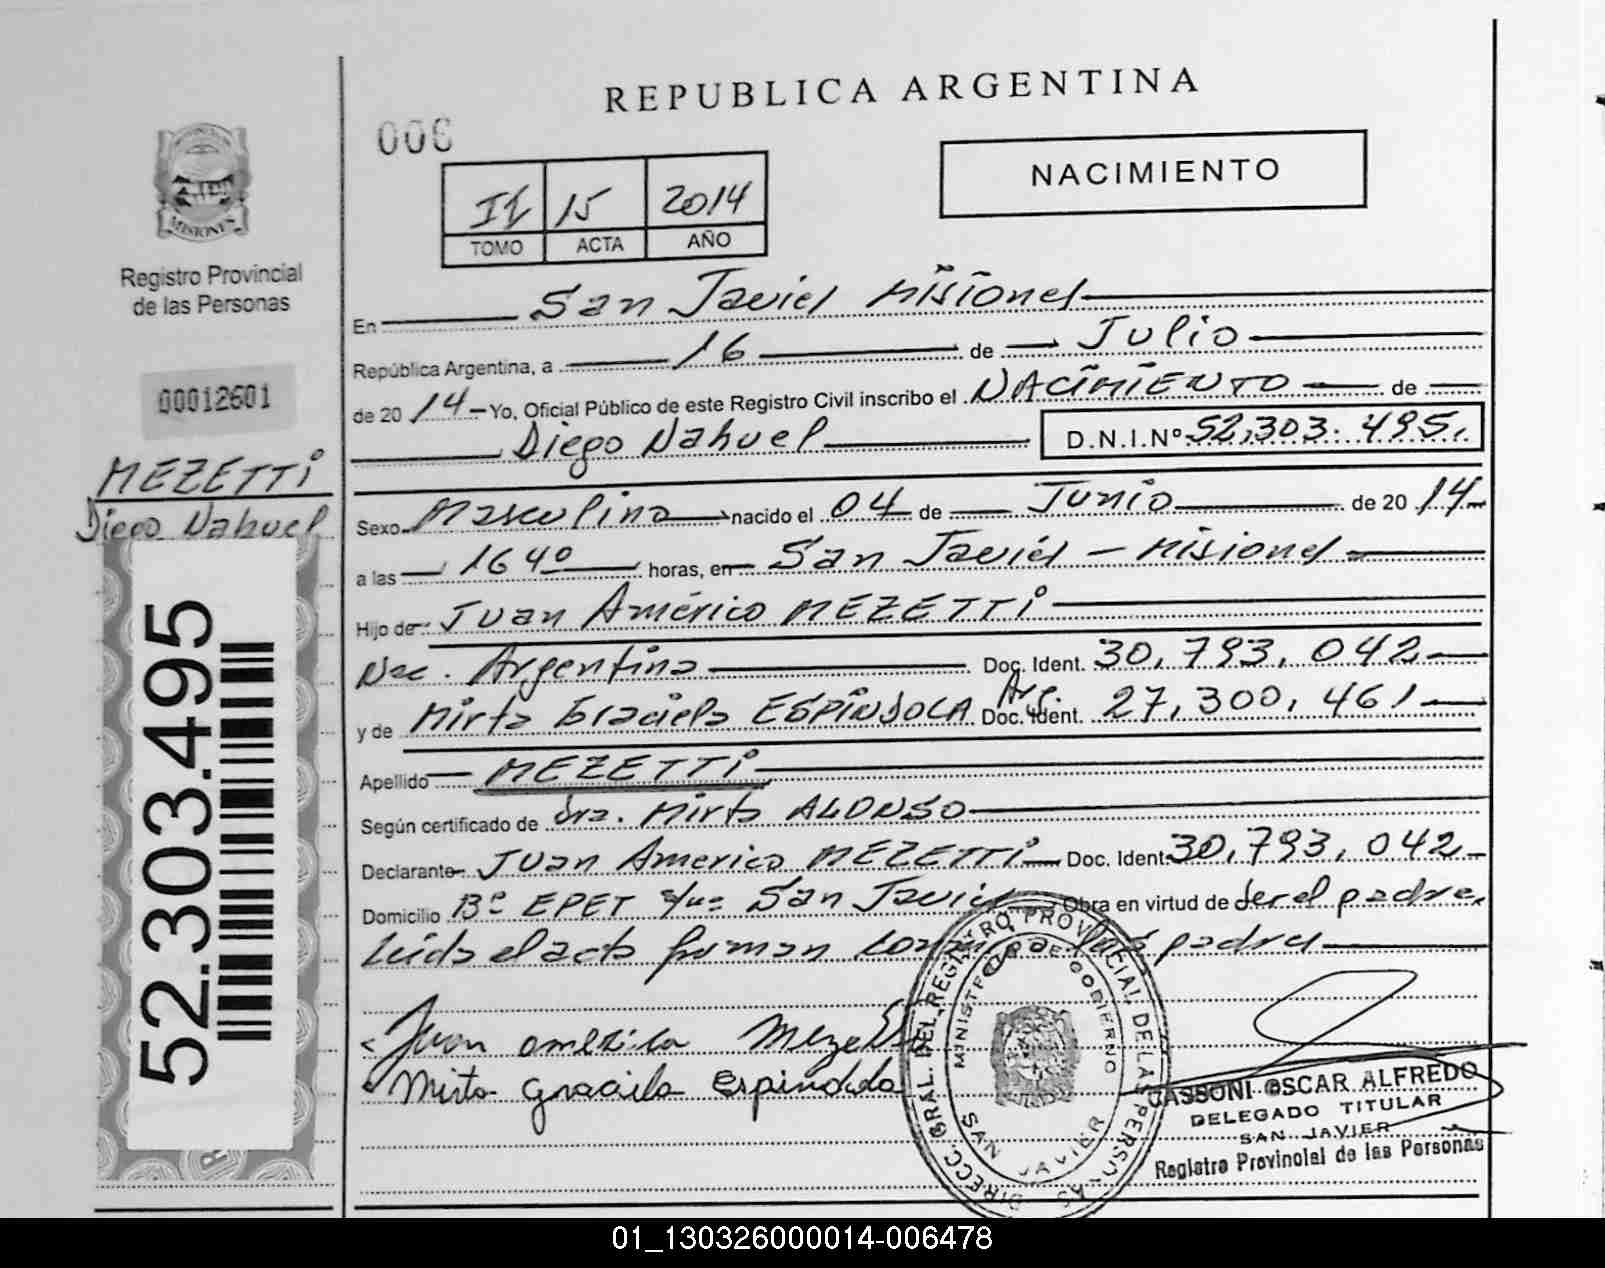 REPUBLICA ARGENTINA
006
NACIMIENTO
II 15 2014
TOMO ACTA AÑO
MISIONES
Registro Provincial
de las Personas
00012601
MEZETTI
Diego Nahuel
52.303.495
En San Javier Misiones
República Argentina, a 16 de Julio
de 20 14 Yo, Oficial Público de este Registro Civil inscribo el NACIMIENTO de
Diego Nahuel D.N.I.Nº 52,303.495.
Sexo Masculino nacido el 04 de Junio de 20 14
a las 16 40 horas, en San Javier - Misiones
Hijo de Juan Américo MEZETTI
Nac. Argentina Doc. Ident. 30,793,042
y de Mirta Graciela ESPINDOLA Arg. Doc. Ident. 27,300,461
Apellido MEZETTI
Según certificado de Dra. Mirta ALONSO
Declarante Juan Americo MEZETTI Doc. Ident. 30,793,042
Domicilio Bº EPET s/nº San Javier Obra en virtud de ser el padre,
Leida el acta firman los padres
Juan americo Mezetti
Mirta Graciela Espindola
DIRECC. GRAL. DEL REGISTRO PROVINCIAL DE LAS PERSONAS
MINISTERIO DE GOBIERNO
SAN JAVIER
CASSONI OSCAR ALFREDO
DELEGADO TITULAR
SAN JAVIER
Registro Provincial de las Personas
01_130326000014-006478